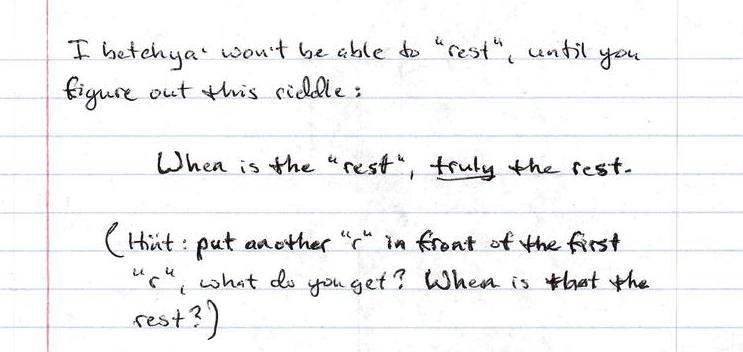 I betchya' won't be able to "rest", until you
figure out this riddle:
When is the "rest", truly the rest.
(Hint: put another "r" in front of the first
"r", what do you get? When is that the
rest?)